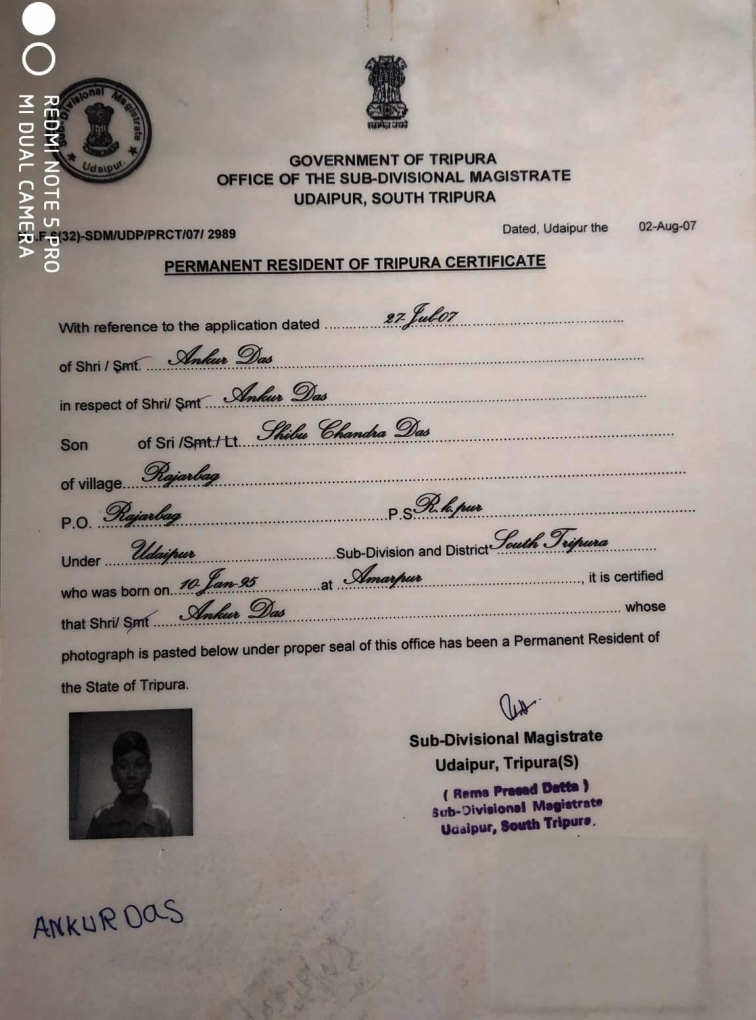 REDMI NOTE 5 PRO
MI DUAL CAMERA
Sub-Divisional Magistrate
Udaipur.
सत्यमेव जयते
GOVERNMENT OF TRIPURA
OFFICE OF THE SUB-DIVISIONAL MAGISTRATE
UDAIPUR, SOUTH TRIPURA
(32)-SDM/UDP/PRCT/07/ 2989 Dated, Udaipur the 02-Aug-07
PERMANENT RESIDENT OF TRIPURA CERTIFICATE
With reference to the application dated 27-Jul-07
of Shri / Smt. Ankur Das
in respect of Shri/ Smt Ankur Das
Son of Sri /Smt./ Lt. Shibu Chandra Das
of village Rajarbag
P.O. Rajarbag P.S R.k.pur
Under Udaipur Sub-Division and District South Tripura
who was born on 10-Jan-95 at Amarpur, it is certified
that Shri/ Smt Ankur Das whose
photograph is pasted below under proper seal of this office has been a Permanent Resident of
the State of Tripura.
Sub-Divisional Magistrate
Udaipur, Tripura(S)
( Rama Prasad Datta )
Sub-Divisional Magistrate
Udaipur, South Tripura.
ANKUR DAS